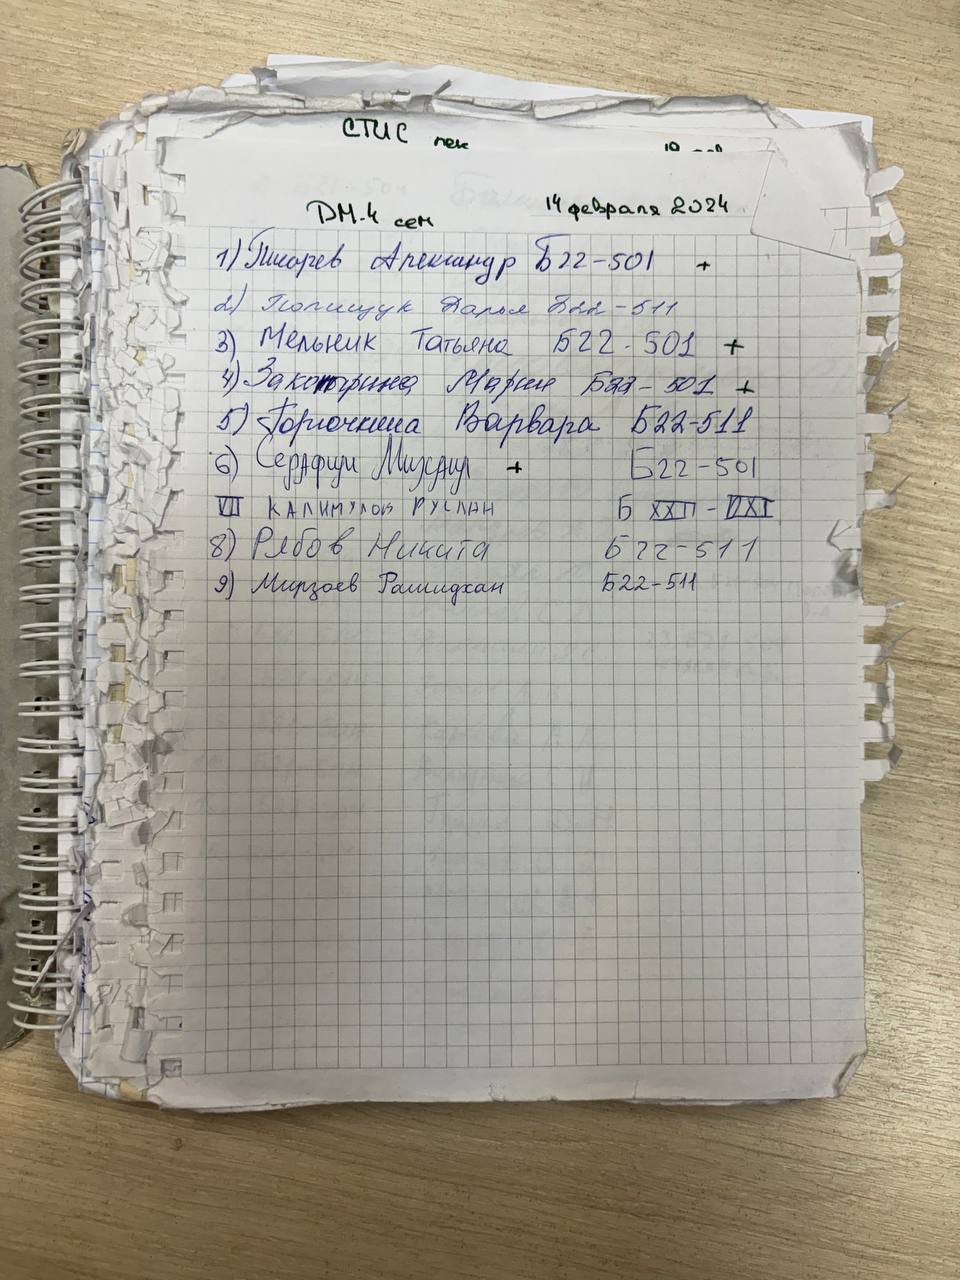 СТИС лек
ДМ-4 сем 14 февраля 2024
1) Писарев Александр Б22-501 +
2) Полищук Дарья Б22-511
3) Мельник Татьяна Б22-501 +
4) Мария Б22-501 +
5) Горючкина Варвара Б22-511
6) Серафим Михаил + Б22-501
VII КАЛИМУЛОВ РУСЛАН Б XXII - DXI
8) Рябов Никита Б22-511
9) Мирзоев Рашидхан Б22-511